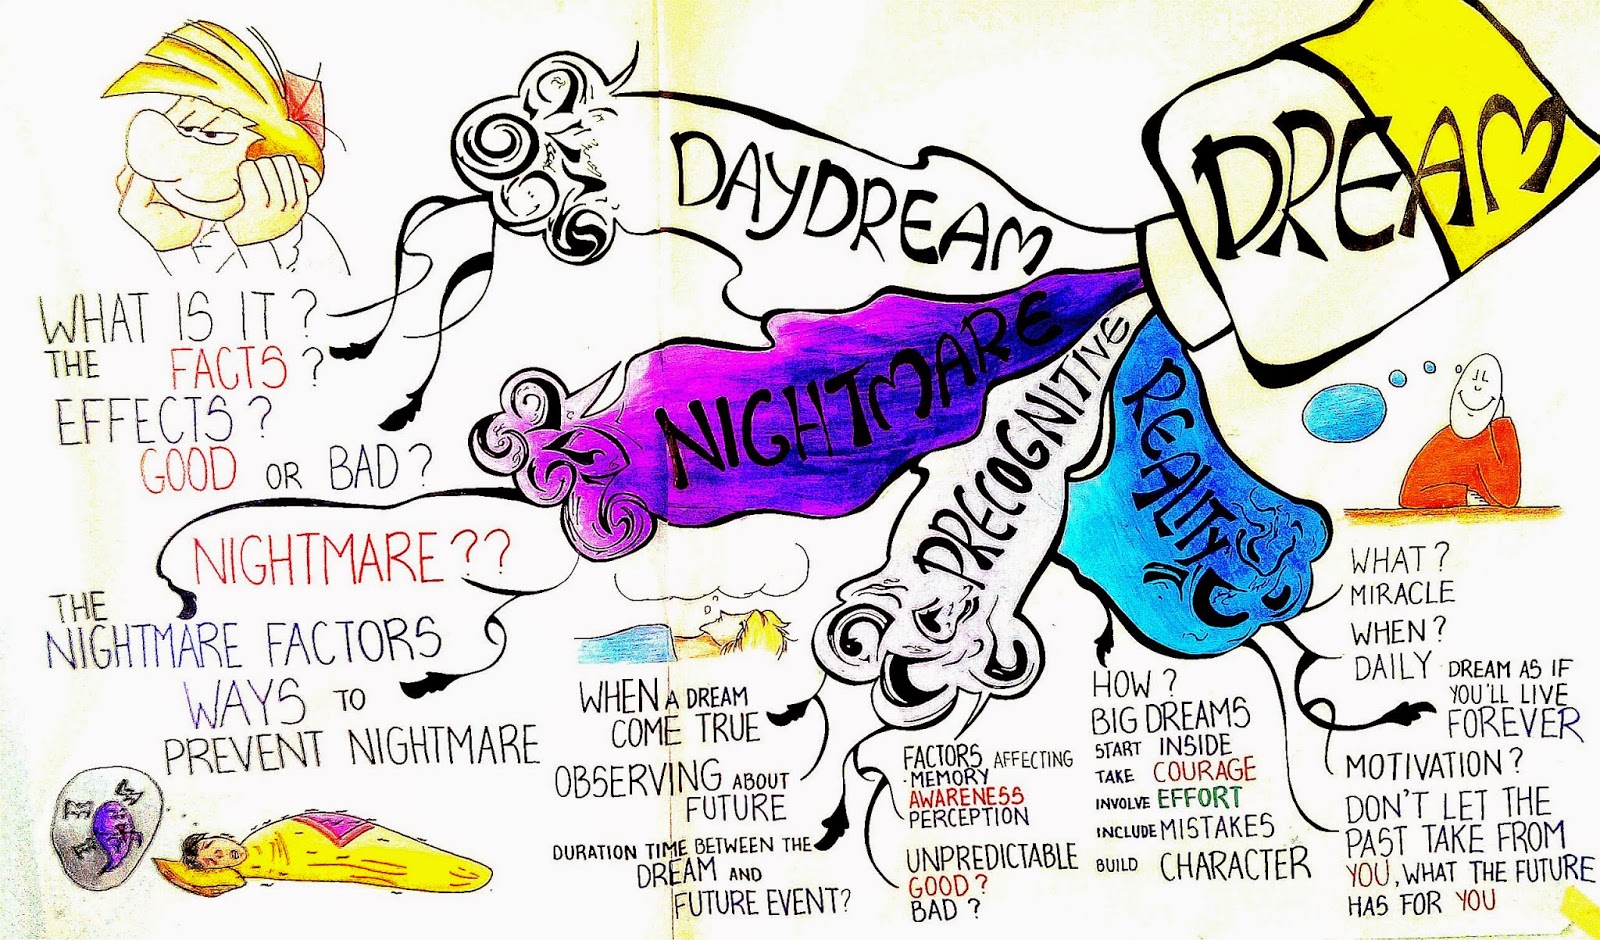 DREAM
DAYDREAM
WHAT IS IT?
THE FACTS?
EFFECTS?
GOOD OR BAD?
NIGHTMARE
NIGHTMARE??
THE
NIGHTMARE FACTORS
WAYS TO
PREVENT NIGHTMARE
PRECOGNITIVE
WHEN A DREAM
COME TRUE
OBSERVING ABOUT
FUTURE
DURATION TIME BETWEEN THE
DREAM AND
FUTURE EVENT?
FACTORS AFFECTING
·MEMORY
AWARENESS
PERCEPTION
UNPREDICTABLE
GOOD?
BAD?
REALITY
HOW?
BIG DREAMS
START INSIDE
TAKE COURAGE
INVOLVE EFFORT
INCLUDE MISTAKES
BUILD CHARACTER
WHAT?
MIRACLE
WHEN?
DAILY
DREAM AS IF
YOU'LL LIVE
FOREVER
MOTIVATION?
DON'T LET THE
PAST TAKE FROM
YOU, WHAT THE FUTURE
HAS FOR YOU